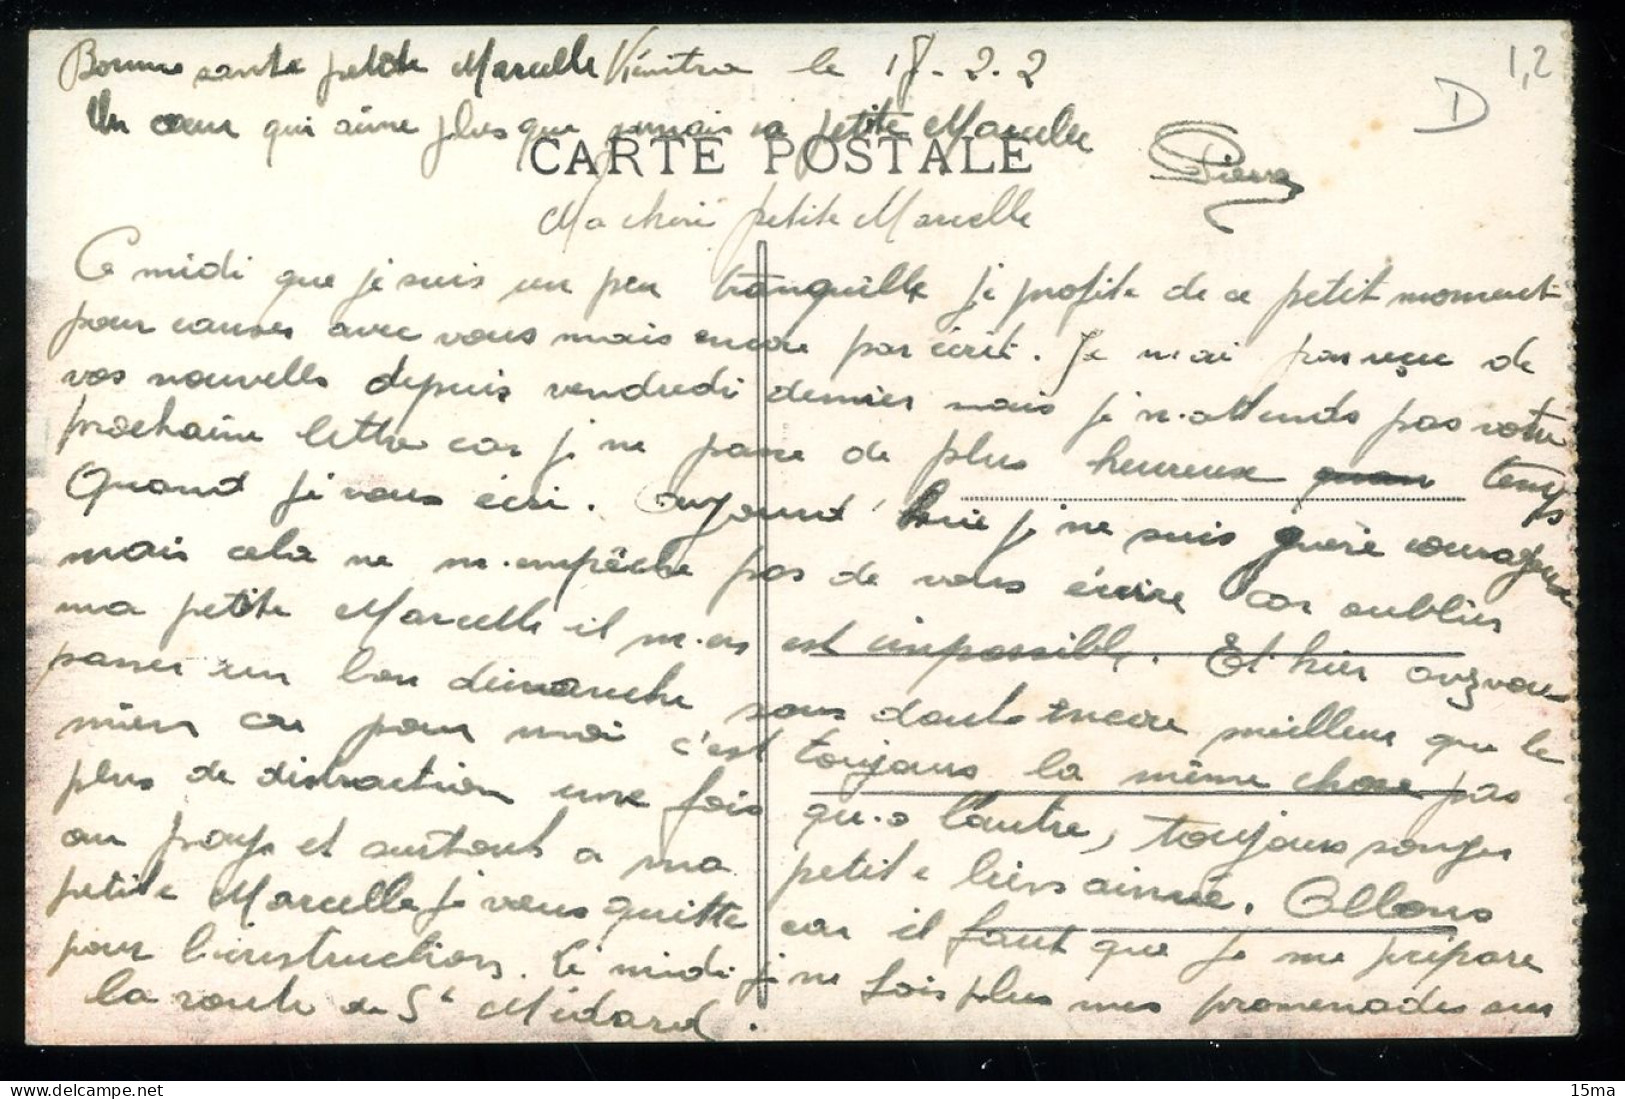 Bonne santé petite Marcelle Kénitra le 18.2.2
1,2
D
Un cœur qui aime plus que jamais sa petite Marcelle
CARTE POSTALE
Pierre
Ma chérie petite Marcelle
Ce midi que je suis un peu tranquille je profite de ce petit moment
pour causer avec vous mais encore par écrit. Je n'ai pas reçue de
vos nouvelles depuis vendredi dernier mais je n'attends pas votre
prochaine lettre car je ne passe de plus heureux temps
Quand je vous écri. Aujourd'huie je ne suis guère courageux
mais cela ne m'empêche pas de vous écrire car oublier
ma petite Marcelle il m'es est impossible. Et hier avez vous
passer un bon dimanche sans doute encore meilleur que le
mien car pour moi c'est toujours la même chose pas
plus de distraction une fois qu'a l'autre, toujours songer
au pays et surtout a ma petite biens aimée. Allons
petite Marcelle je vous quitte car il faut que je me prépare
pour l'instructions. Ce midi je ne fois plus mes promenades sur
la route de St Médard.
15ma